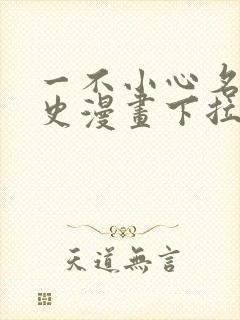 一不小心名
史漫畫下拉
天道無言